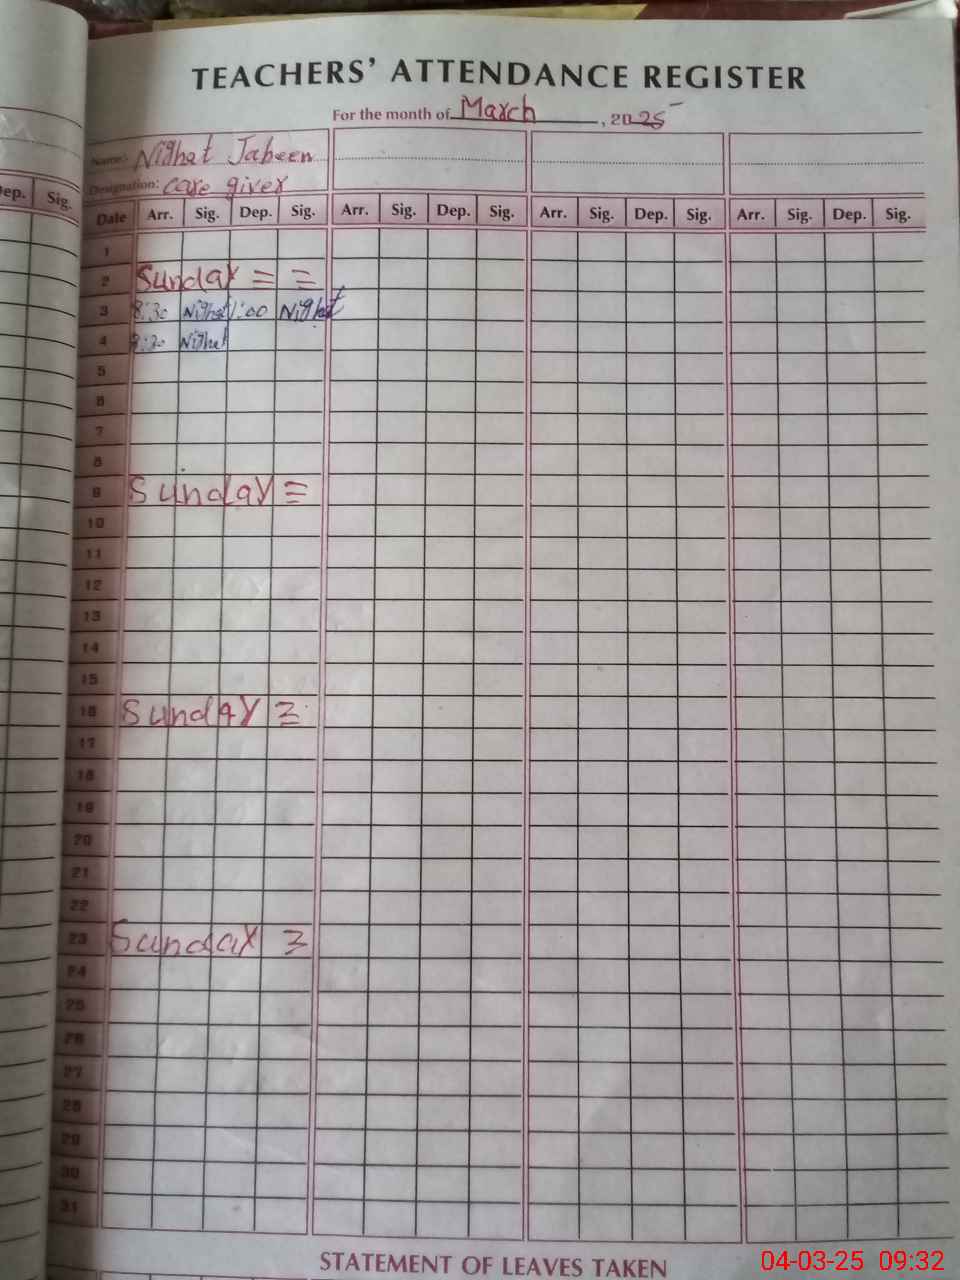 TEACHERS' ATTENDANCE REGISTER
For the month of March, 2025
Name: Nighat Jabeen
Designation: care giver
ep. Sig.
Date Arr. Sig. Dep. Sig. Arr. Sig. Dep. Sig. Arr. Sig. Dep. Sig. Arr. Sig. Dep. Sig.
1
2 Sunday = =
3 8:30 Nighat 1:00 Nighat
4 8:30 Nighat
5
6
7
8
9 Sunday =
10
11
12
13
14
15
16 Sunday
17
18
19
20
21
22
23 Sunday
24
25
26
27
28
29
30
31
STATEMENT OF LEAVES TAKEN
04-03-25 09:32